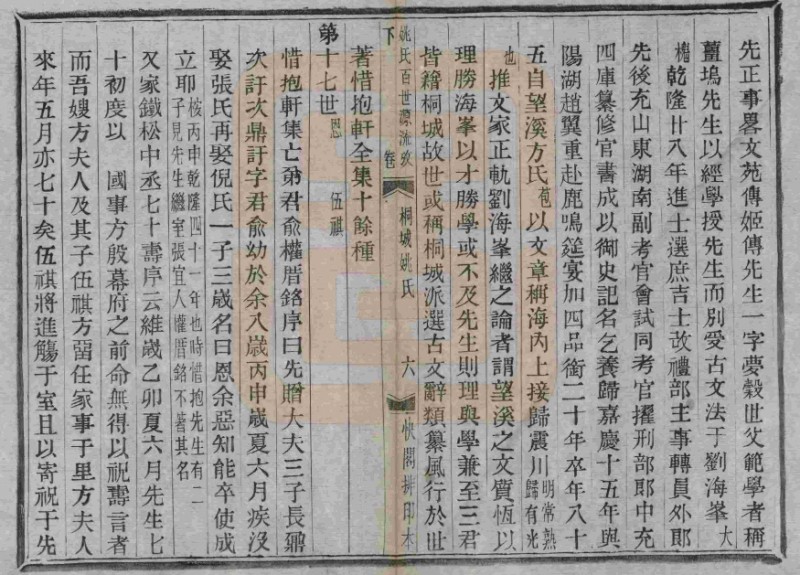 先正事畧文苑傳姬傳先生一字夢穀世父範學者稱
薑塢先生以經學授先生而別愛古文法于劉海峯大
櫆乾隆廿八年進士選庶吉士改禮部主事轉員外郎
先後充山東湖南副考官會試同考官擢刑部郎中充
四庫纂修官書成以御史記名乞養歸嘉慶十五年與
陽湖趙翼重赴鹿鳴筵宴加四品銜二十年卒年八十
五自望溪方氏苞以文章稱海內上接歸震川明常熟歸有光
也推文家正軌劉海峯繼之論者謂望溪之文質恆以
理勝海峯以才勝學或不及先生則理與學兼至三君
皆籍桐城故世或稱桐城派選古文辭類纂風行於世
姚氏百世源流攷 卷下 桐城姚氏 六 快閣排印本
著惜抱軒全集十餘種
第十七世恩 伍祺
惜抱軒集亡弟君俞權厝銘序曰先贈大夫三子長鼐
次訏次鼎訏字君俞幼於余八歲丙申歲夏六月疾沒
娶張氏再娶倪氏一子三歲名曰恩余惡知能卒使成
立耶桉丙申乾隆四十一年也時惜抱先生有二子見先生繼室張宜人權厝銘不著其名
又家鐵松中丞七十壽序云維歲乙卯夏六月先生七
十初度以 國事方殷幕府之前命無得以祝壽言者
而吾嫂方夫人及其子伍祺方畱任家事于里方夫人
來年五月亦七十矣伍祺將進觴于室且以寄祝于先